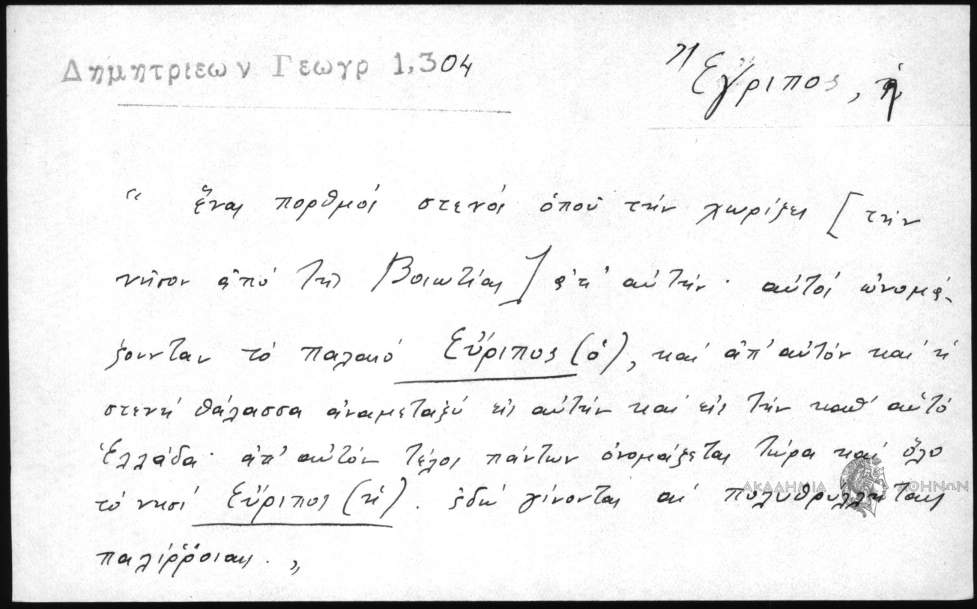 Δημητριεων Γεωγρ 1,304
Εὔριπος, ἡ
“ ἕνας πορθμὸς στενὸς ὁποῦ τὴν χωρίζει [τὴν
νῆσον ἀπὸ τῆς Βοιωτίας] ἀπ' αὐτήν· αὐτὸς ὠνομά-
ζουνταν τὸ παλαιὸ Εὔριπος (ὁ), καὶ ἀπ' αὐτὸν καὶ ἡ
στενὴ θάλασσα ἀναμεταξὺ εἰς αὐτὴν καὶ εἰς τὴν καθ' αὑτὸ
Ἑλλάδα· ἀπ' αὐτὸν τέλος πάντων ὀνομάζεται τώρα καὶ ὅλο
τὸ νησὶ Εὔριπος (ἡ). ἐδῶ γίνονται αἱ πολυθρύλληταις
παλίῤῥοιαις. „
ΑΚΑΔΗΜΙΑ ΑΘΗΝΩΝ